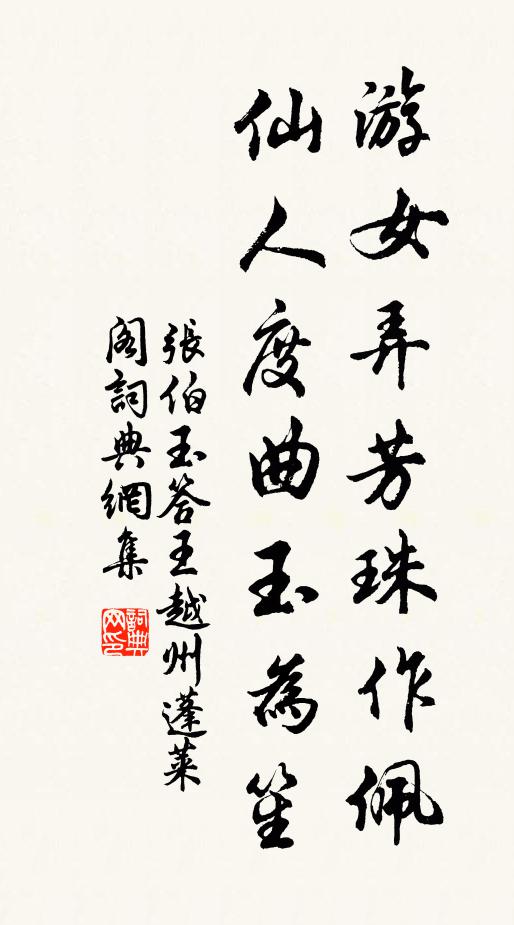 游女弄芳珠作佩
仙人度曲玉為笙
張伯玉答王越州蓬萊
閣詞典網集
詞典
网印